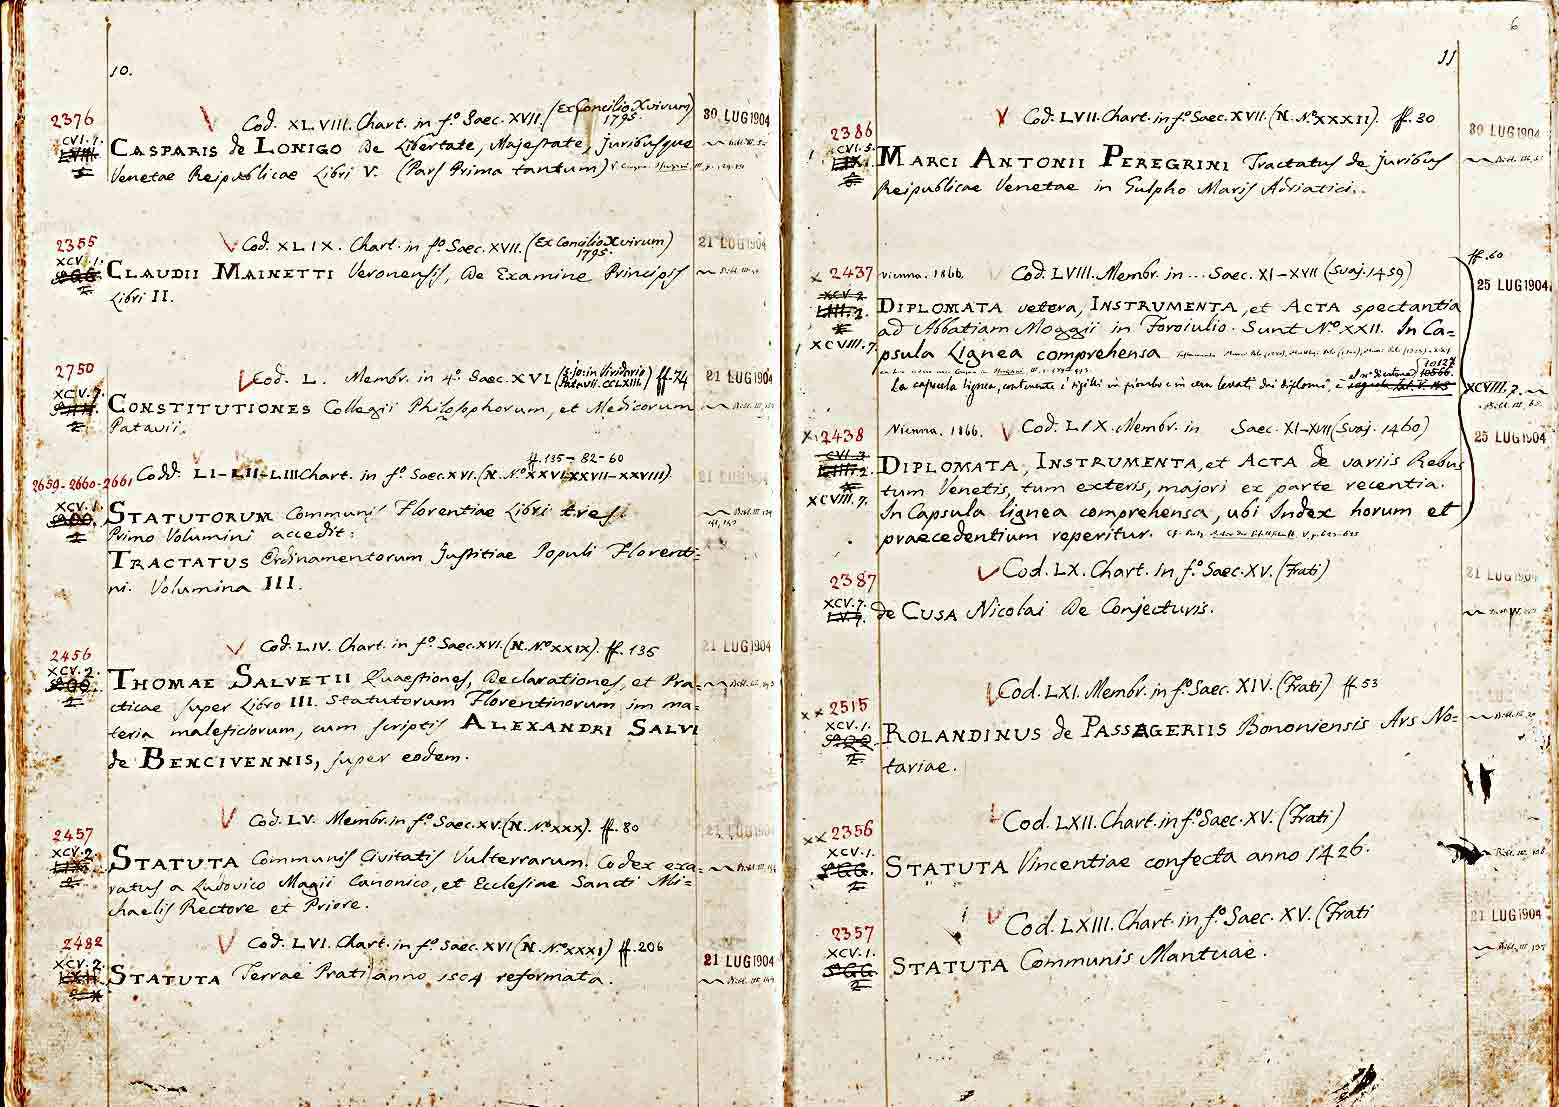 10.
2376
Cod. XLVIII. Chart. in f.º Saec. XVII. (Ex Concilio Xvirum) 1795.
30 LUG 1904
CVI. 7.
CASPARIS de LONIGO De Libertate, Majestate, juribusque
Venetae Reipublicae Libri V. (Pars Prima tantum)
2355
Cod. XLIX. Chart. in f.º Saec. XVII. (Ex Concilio Xvirum) 1795.
21 LUG 1904
XCV. 1.
CLAUDII MAINETTI Veronensis, De Examine Principis
Libri II.
2750
Cod. L. Membr. in 4.º Saec. XVI (S. Jo: in Viridario Patavii. CCLXIII) ff. 74
21 LUG 1904
XCV. 7.
CONSTITUTIONES Collegii Philosophorum, et Medicorum
Patavii.
ff. 135 - 82 - 60
2659-2660-2661
Codd. LI-LII-LIII Chart. in f.º Saec. XVI. (N. Nº XXVI-XXVII-XXVIII)
21 LUG 1904
XCV. 1.
STATUTORUM Communis Florentiae Libri tres.
Primo Volumini accedit:
TRACTATUS Ordinamentorum Justitiae Populi Florenti=
ni. Volumina III.
2456
Cod. LIV. Chart. in f.º Saec. XVI. (N. Nº XXIX). ff. 135
21 LUG 1904
XCV. 2.
THOMAE SALVETII Quaestiones, Declarationes, et Pra=
cticae super Libro III. Statutorum Florentinorum im ma=
teria maleficiorum, cum scriptis ALEXANDRI SALVI
de BENCIVENNIS, super eodem.
2457
Cod. LV. Membr. in f.º Saec. XV. (N. Nº XXX). ff. 80
21 LUG 1904
XCV. 2.
STATUTA Communis Civitatis Vulterrarum. Codex exa=
ratus a Ludovico Magii Canonico, et Ecclesiae Sancti Mi=
chaelis Rectore et Priore.
2482
Cod. LVI. Chart. in f.º Saec. XVI (N. Nº XXXI) ff. 206
21 LUG 1904
XCV. 2.
STATUTA Terrae Prati anno 1504 reformata.
6
11
2386
Cod. LVII. Chart. in f.º Saec. XVII. (N. Nº XXXII). ff. 30
30 LUG 1904
CVI. 5.
MARCI ANTONII PEREGRINI Tractatus de juribus
Reipublicae Venetae in Gulpho Maris Adriatici.
ff. 60
2437
Vienna. 1866. Cod. LVIII. Membr. in ... Saec. XI-XVII (Suaj. 1459)
25 LUG 1904
XCV 2
DIPLOMATA vetera, INSTRUMENTA, et ACTA spectantia
ad Abbatiam Moggii in Foroiulio. Sunt Nº XXII. In Ca=
XCVIII. 7.
psula Lignea comprehensa
10127
La capsula lignea, contenente i sigilli in piombo e in cera levati dai diplomi, è al nº di entrata 10566.
XCVIII. 7.
2438
Vienna. 1866. Cod. LIX. Membr. in Saec. XI-XVII (Suaj. 1460)
25 LUG 1904
CVI. 3
DIPLOMATA, INSTRUMENTA, et ACTA de variis Rebus
XCVIII. 7.
tum Venetis, tum exteris, majori ex parte recentia.
In Capsula lignea comprehensa, ubi Index horum et
praecedentium reperitur.
2387
Cod. LX. Chart. in f.º Saec. XV. (Frati)
21 LUG 1904
XCV. 7.
de CUSA Nicolai De Conjecturis.
2515
Cod. LXI. Membr. in f.º Saec. XIV. (Frati) ff 53
XCV. 1.
ROLANDINUS de PASSAGERIIS Bononiensis Ars No=
tariae.
2356
Cod. LXII. Chart. in f.º Saec. XV. (Frati)
XCV. 1.
STATUTA Vincentiae confecta anno 1426.
2357
Cod. LXIII. Chart. in f.º Saec. XV. (Frati
21 LUG 1904
XCV. 1.
STATUTA Communis Mantuae.